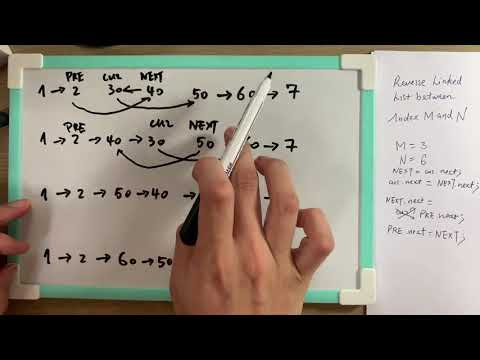 PRE CUR NEXT
1 → 2 30 ← 40 50 → 60 → 7
PRE CUR NEXT
1 → 2 → 40 → 30 50 → 7
1 → 2 → 50 → 40
1 → 2 → 60 → 50
Reverse Linked
List between
Index M and N
M = 3
N = 6
NEXT = cur.next;
cur.next = NEXT.next;
NEXT.next =
PRE.next;
PRE.next = NEXT;